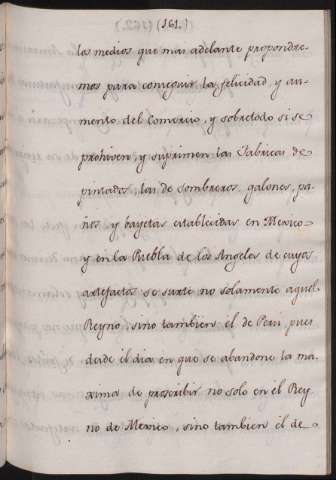 (161.)
los medios que mas adelante propondre-
mos para conseguir la felicidad, y au-
mento del Comercio, y sobretodo si se
prohiven, y suprimen las Fabricas de
pintados, las de sombreros, galones, pa-
ños, y bayetas establecidas en Mexico
y en la Puebla de los Angeles de cuyos
artefactos se surte no solamente aquel
Reyno, sino tambien el de Perú, pues
desde el dia en que se abandone la ma-
xima de proscribir no solo en el Rey-
no de Mexico, sino tambien el de